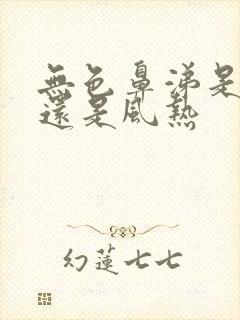 無色鼻涕是
還是風熱
幻蓮七七